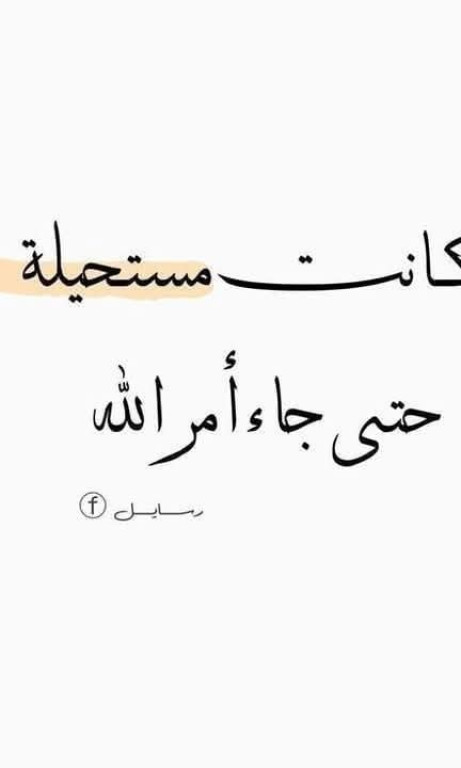 كانت مستحيلة
حتى جاء أمر الله
رسايل f